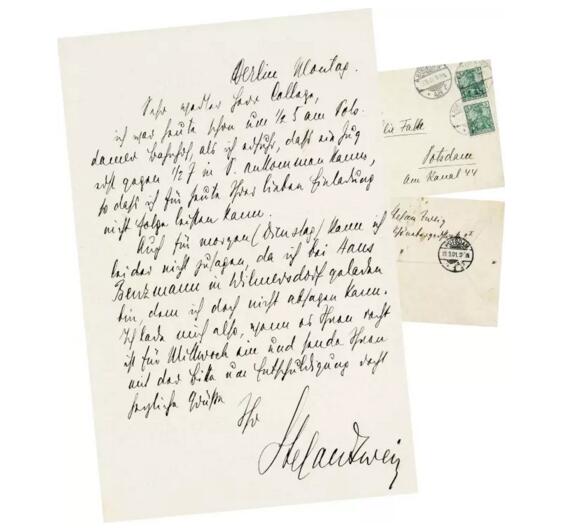 Berlin Montag.
Sehr werter Herr College,
ich war heute schon um ½ 5 am Pots-
damer Bahnhof, als ich erfuhr, dass ein Zug
erst gegen ½ 7 in P. ankommen kann,
so dass ich für heute Ihrer lieben Einladung
nicht Folge leisten kann.
Auch für morgen (Dienstag) kann ich
leider nicht zusagen, da ich bei Hans
Benzmann in Wilmersdorf geladen
bin dem ich doch nicht absagen kann.
Ich lade mich also, wenn es Ihnen recht
ist für Mittwoch ein und sende Ihnen
mit der Bitte um Entschuldigung recht
herzliche Grüße
Ihr
Stefan Zweig
Falke
Potsdam
am Kanal 44
Stefan Zweig